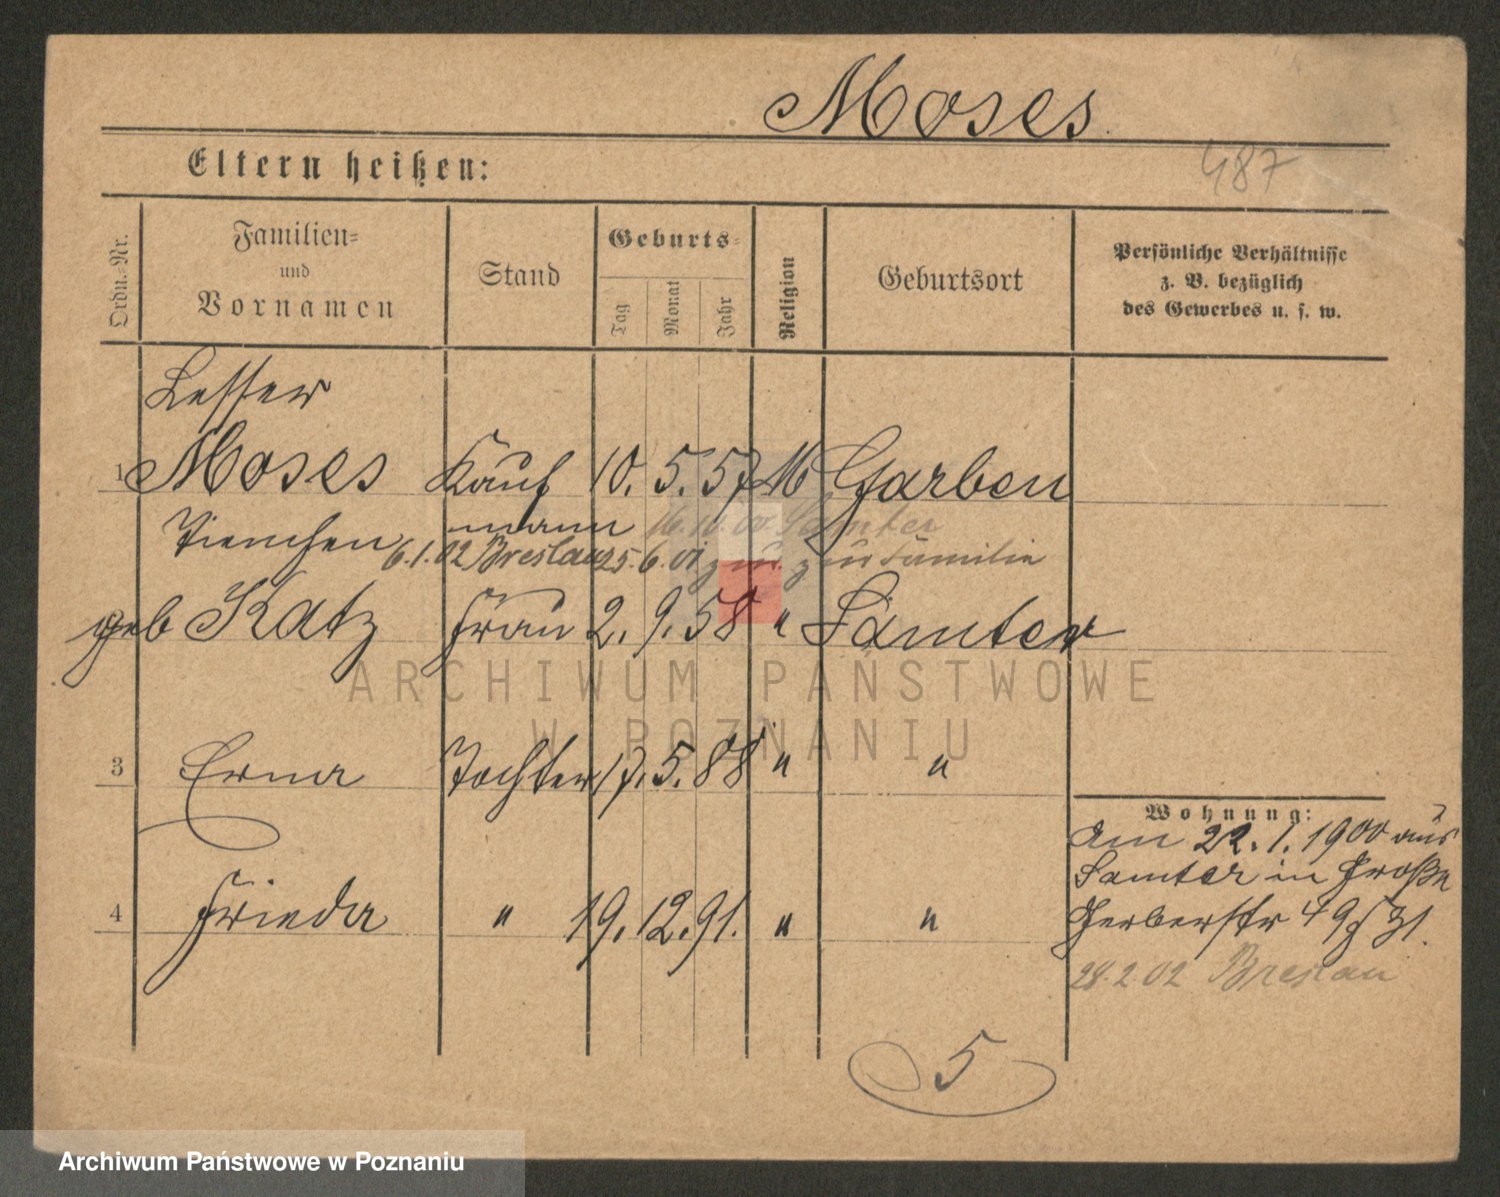 Moses
487
Eltern heißen:
Ordn.-Nr.
Familien-
und
Vornamen
Stand
Geburts-
Tag
Monat
Jahr
Religion
Geburtsort
Persönliche Verhältnisse
z. B. bezüglich
des Gewerbes u. s. w.
Lesser
1 Moses Kauf 10. 5. 57 Garben
mann 16. 10. 00 Samter
6.1.02 Breslau 25. 6. 01 zur Familie
geb Katz Frau 2. 9. 58 " Samter
3 Erna Tochter 17. 5. 88 " "
4 Frieda " 19. 12. 91. " "
Wohnung:
Am 22. 1. 1900 aus
Samter in Große
Gerberstr 49
28.2.02 Breslau
5
ARCHIWUM PAŃSTWOWE
W POZNANIU
Archiwum Państwowe w Poznaniu